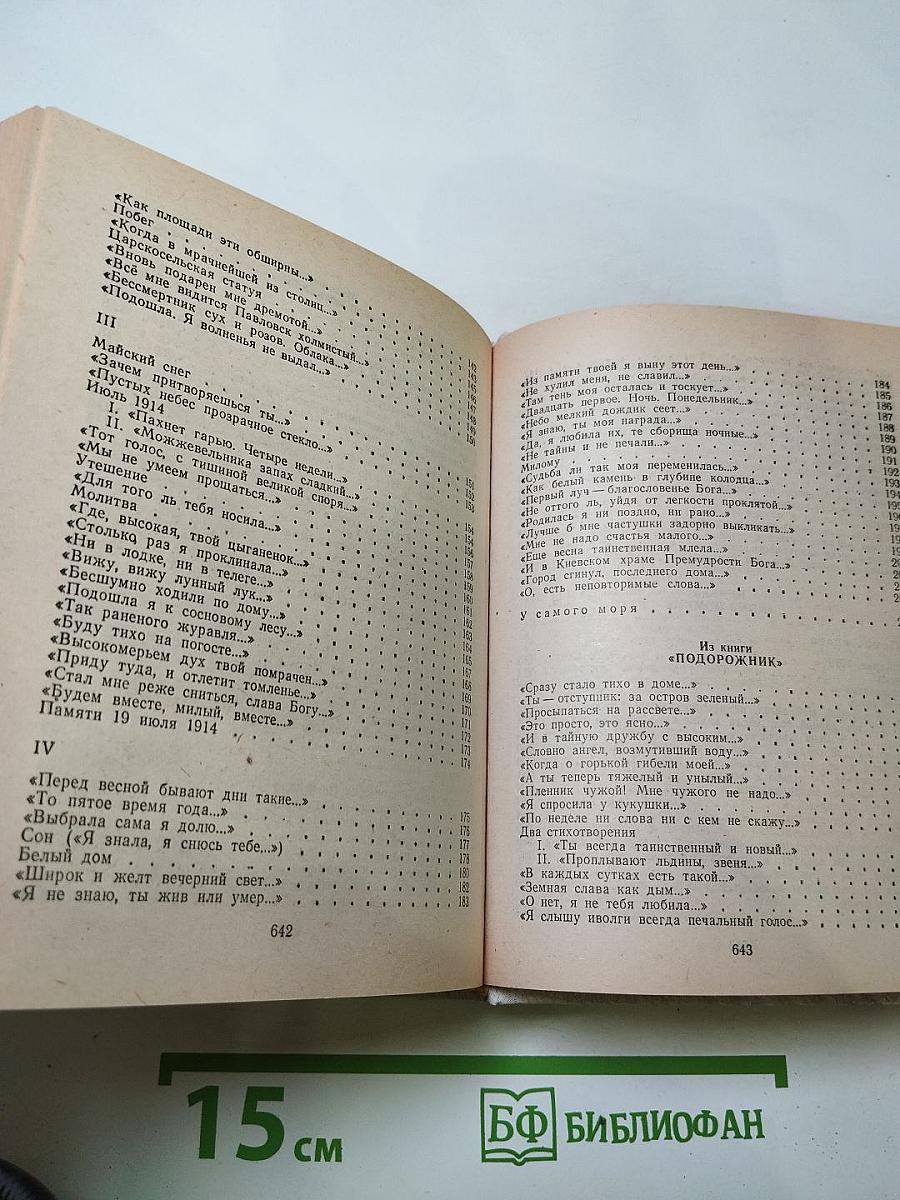 «Как площади эти обширны...»
Побег
«Когда в мрачнейшей из столиц...»
Царскосельская статуя
«Вновь подарен мне дремотой...»
«Всё мне видится Павловск холмистый...»
«Бессмертник сух и розов. Облака...»
«Подошла. Я волненья не выдал...»
III
Майский снег
«Зачем притворяешься ты...»
«Пустых небес прозрачное стекло...»
Июль 1914
I. «Пахнет гарью. Четыре недели...»
II. «Можжевельника запах сладкий...»
«Тот голос, с тишиной великой споря...»
«Мы не умеем прощаться...»
Утешение
«Для того ль тебя носила...»
Молитва
«Где, высокая, твой цыганенок...»
«Столько раз я проклинала...»
«Ни в лодке, ни в телеге...»
«Вижу, вижу лунный лук...»
«Бесшумно ходили по дому...»
«Подошла я к сосновому лесу...»
«Так раненого журавля...»
«Буду тихо на погосте...»
«Высокомерьем дух твой помрачен...»
«Приду туда, и отлетит томленье...»
«Стал мне реже сниться, слава Богу...»
«Будем вместе, милый, вместе...»
Памяти 19 июля 1914 174
IV
«Перед весной бывают дни такие...» 175
«То пятое время года...» 176
«Выбрала сама я долю...» 177
Сон («Я знала, я снюсь тебе...») 178
Белый дом 180
«Широк и желт вечерний свет...» 182
«Я не знаю, ты жив или умер...» 183
642
«Из памяти твоей я выну этот день...» 184
«Не хулил меня, не славил...» 185
«Там тень моя осталась и тоскует...» 186
«Двадцать первое. Ночь. Понедельник...» 187
«Небо мелкий дождик сеет...» 188
«Я знаю, ты моя награда...» 189
«Да, я любила их, те сборища ночные...» 190
«Не тайны и не печали...» 191
Милому 192
«Судьба ли так моя переменилась...»
«Как белый камень в глубине колодца...»
«Первый луч — благословенье Бога...»
«Не оттого ль, уйдя от легкости проклятой...»
«Родилась я ни поздно, ни рано...»
«Лучше б мне частушки задорно выкликать...»
«Мне не надо счастья малого...»
«Еще весна таинственная млела...»
«И в Киевском храме Премудрости Бога...»
«Город сгинул, последнего дома...»
«О, есть неповторимые слова...»
У самого моря
Из книги
«ПОДОРОЖНИК»
«Сразу стало тихо в доме...»
«Ты — отступник: за остров зеленый...»
«Просыпаться на рассвете...»
«Это просто, это ясно...»
«И в тайную дружбу с высоким...»
«Словно ангел, возмутивший воду...»
«Когда о горькой гибели моей...»
«А ты теперь тяжелый и унылый...»
«Пленник чужой! Мне чужого не надо...»
«Я спросила у кукушки...»
«По неделе ни слова ни с кем не скажу...»
Два стихотворения
I. «Ты всегда таинственный и новый...»
II. «Проплывают льдины, звеня...»
«В каждых сутках есть такой...»
«Земная слава как дым...»
«О нет, я не тебя любила...»
«Я слышу иволги всегда печальный голос...»
643
15 см
БФ БИБЛИОФАН